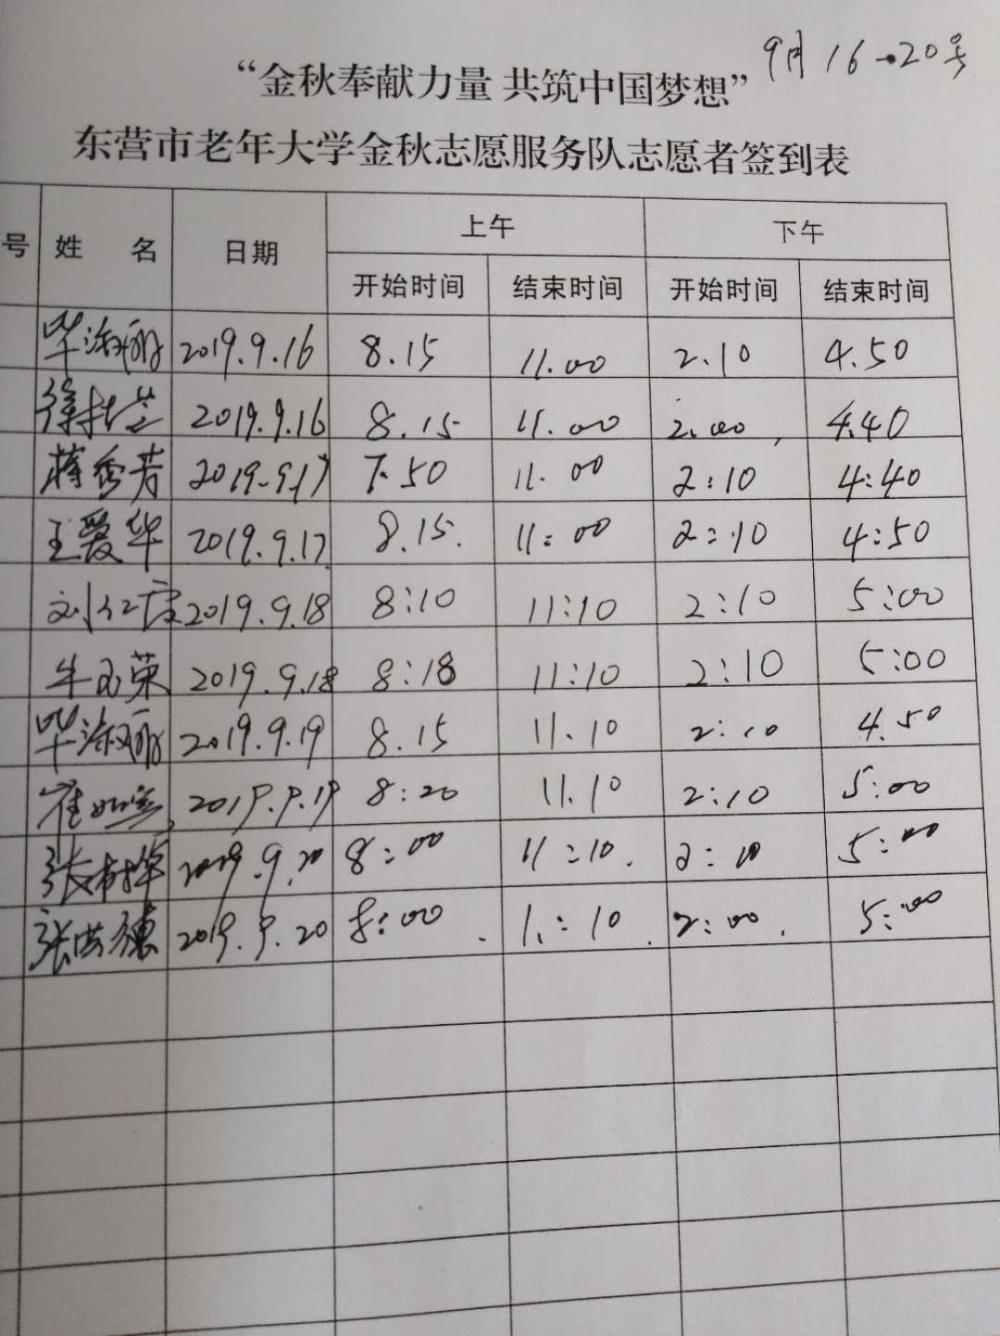 9月16-20号
“金秋奉献力量 共筑中国梦想”
东营市老年大学金秋志愿服务队志愿者签到表
号 姓 名 日期 上午 下午
开始时间 结束时间 开始时间 结束时间
毕淑丽 2019.9.16 8.15 11.00 2.10 4.50
徐桂兰 2019.9.16 8.15 11.00 2.00 4.40
蒋秀芳 2019.9.17 7.50 11.00 2:10 4:40
王爱华 2019.9.17 8.15 11:00 2:10 4:50
刘 2019.9.18 8:10 11:10 2:10 5:00
牛玉荣 2019.9.18 8:18 11:10 2:10 5:00
毕淑丽 2019.9.19 8.15 11.10 2:10 4.50
崔 2019.9.19 8:20 11.10 2:10 5:00
张 2019.9.20 8:00 11:10 2:10 5:00
张洪德 2019.9.20 8:00 11:10 2:00 5:00